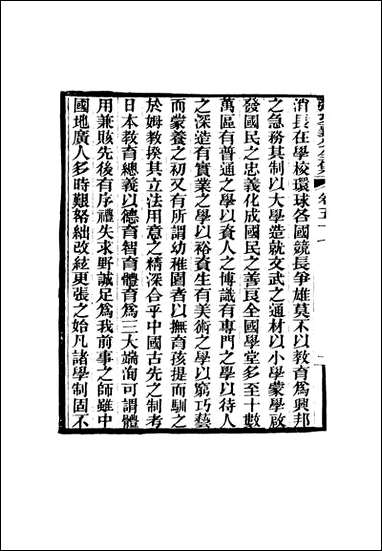 消長在學校環球各國競長爭雄莫不以教育爲興邦
之急務其制以大學造就文武之通材以小學蒙學啟
發國民之忠義化成國民之善良全國學堂多至十數
萬區有普通之學以資人之博識有專門之學以待人
之深造有實業之學以裕資生有美術之學以窮巧藝
而蒙養之初又有所謂幼稚園者以撫育孩提而馴之
於姆教揆其立法用意之精深合乎中國古先之制考
日本教育總義以德育智育體育爲三大端洵可謂體
用兼賅先後有序禮失求野誠足爲我前事之師雖中
國地廣人多時艱帑絀改絃更張之始凡諸學制固不